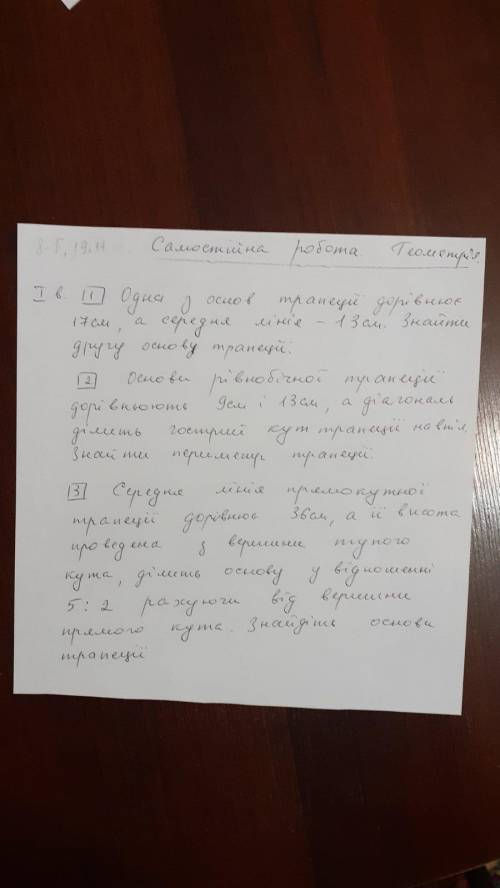 8-Г, 19.11 Самостійна робота. Геометрія.
I в. 1 Одна з основ трапеції дорівнює
17см, а середня лінія - 13см. Знайти
другу основу трапеції.
2 Основи рівнобічної трапеції
дорівнюють 9см і 13см, а діагональ
ділить гострий кут трапеції навпіл.
Знайти периметр трапеції.
3 Середня лінія прямокутної
трапеції дорівнює 36см, а її висота
проведена з вершини тупого
кута, ділить основу у відношенні
5:2 рахуючи від вершини
прямого кута. Знайдіть основи
трапеції